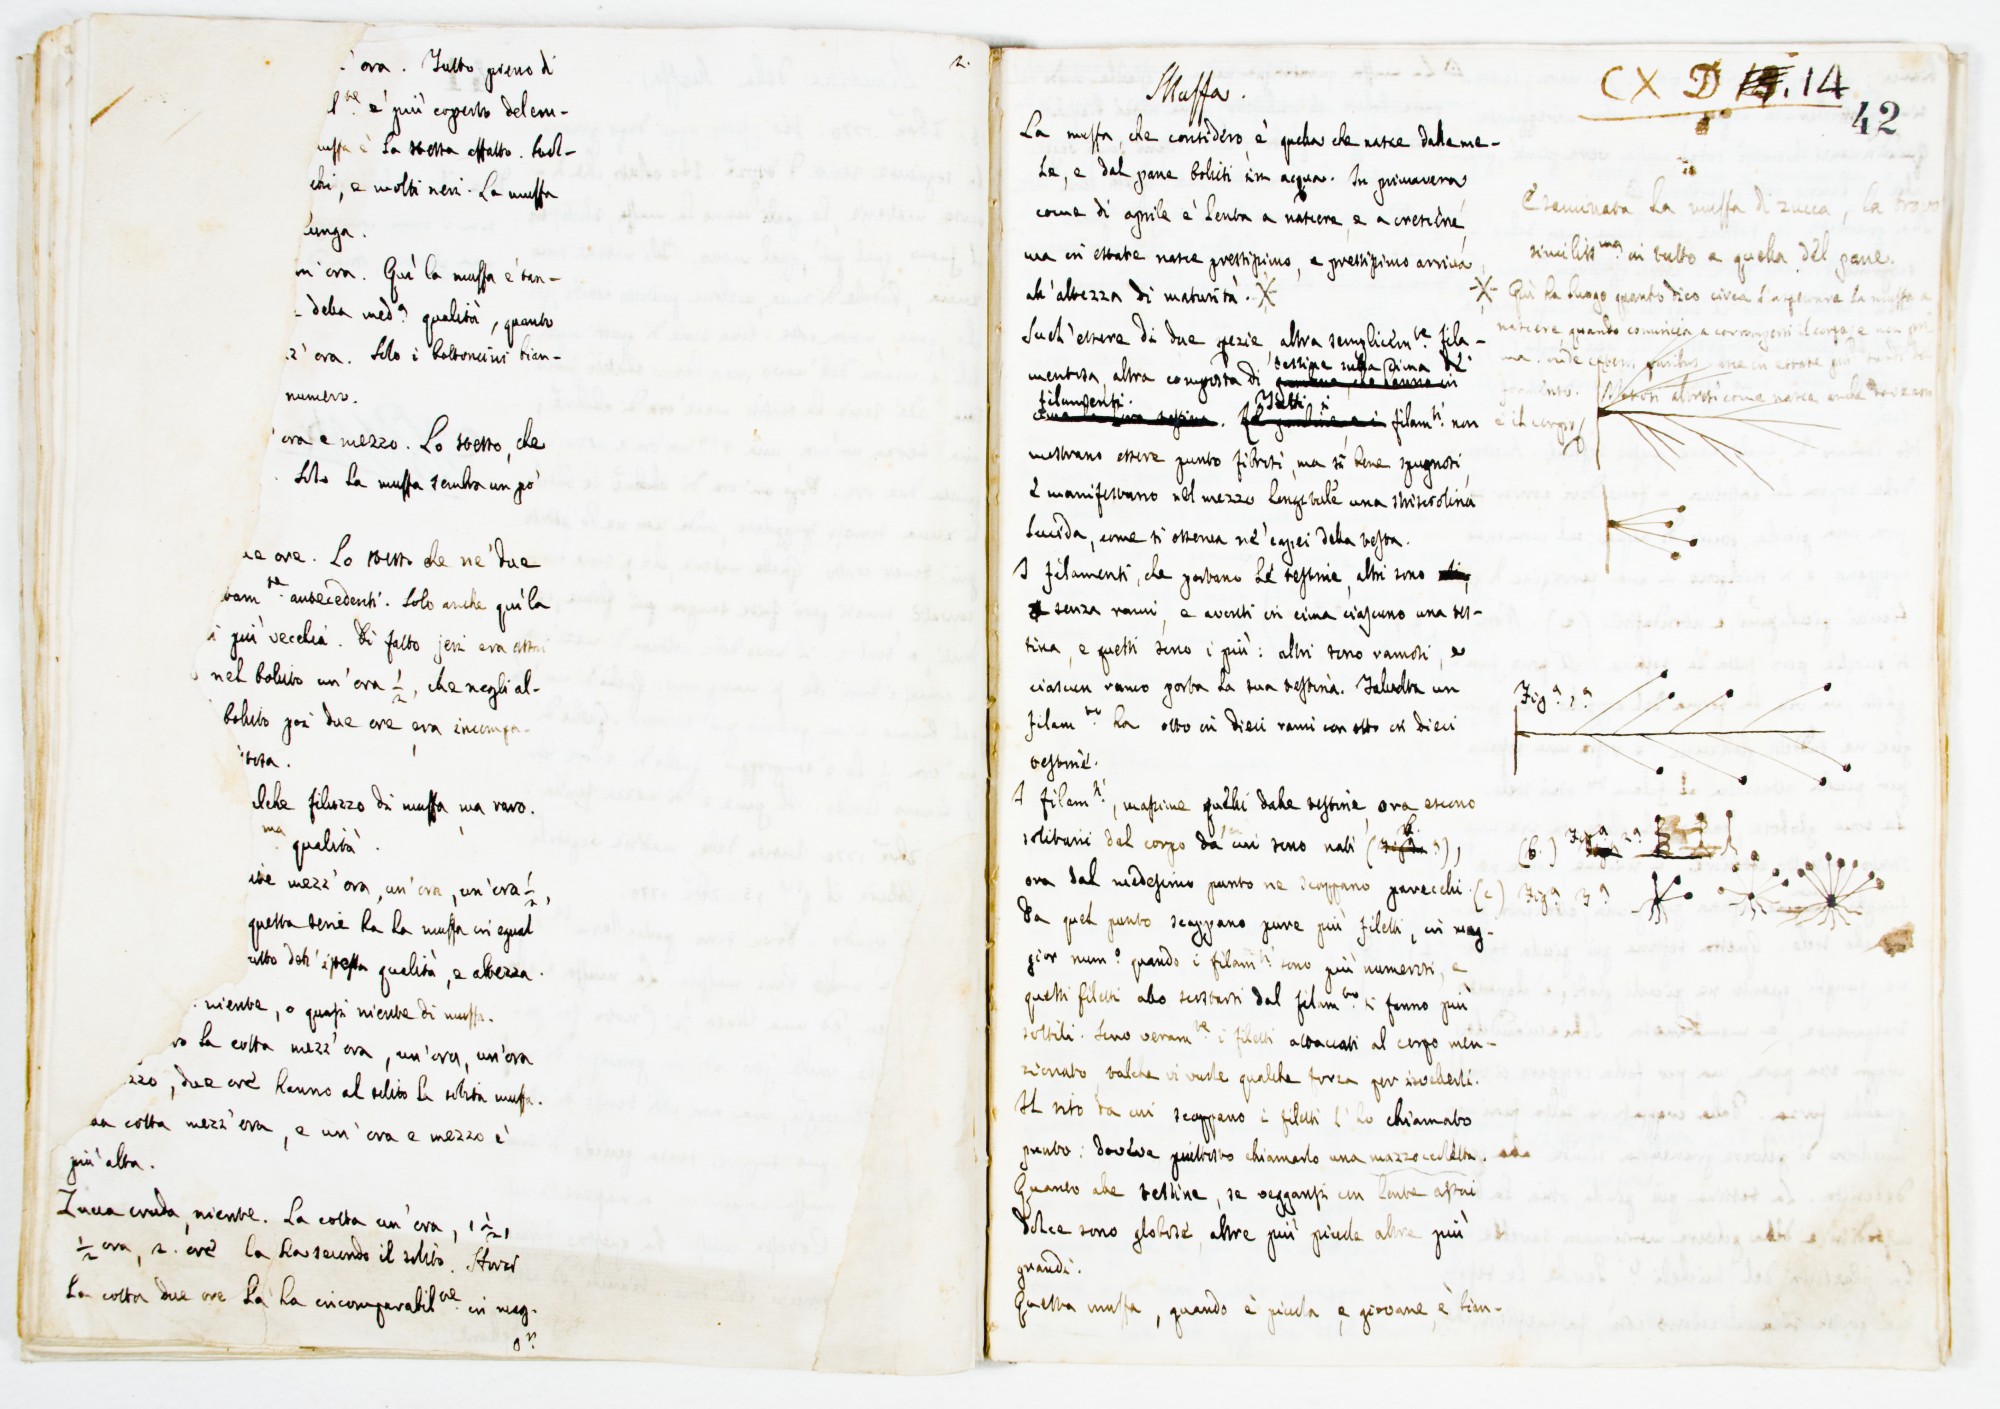 'ora. Tutto pieno di
l.te e' più coperto del em-
uffa è la stessa affatto. Suol-
chi, e molti neri. La muffa
lunga.
m' ora. Qui la muffa e' tan-
della med.a qualità, quanto
z' ora. Solo i bottoncini bian-
numero.
'ora e mezzo. Lo stesso, che
. Solo la muffa sembra un pò
ue ore. Lo stesso che ne' due
tam.te antecedenti. Solo anche quì la
i più vecchia. Di fatto jeri era assai
nel bollito un' ora 1/2, che negli al-
bollito poi due ore era incompa-
lche filuzzo di muffa, ma raro.
ma qualità.
mezz' ora, un' ora, un' ora 1/2,
questa serie ha la muffa in egual
utto dell' istessa qualità, e altezza.
niente, o quasi niente di muffa.
la cotta mezz' ora, un' ora, un' ora
zzo, due ore hanno al solito la solita muffa.
cotta mezz' ora, e un' ora e mezzo è
più alta.
Zucca cruda, niente. La cotta un' ora, 1 1/2,
1/2 ora, 2. ore la ha secondo il solito.
La cotta due ore la ha incomparabil.te in mag-
g.r
2.
Muffa.
CX D 14
42
La muffa, che considero, è quella che nasce dalle me-
le, e dal pane bolliti in acqua. In primavera
come di aprile è lenta a nascere, e a crescere,
ma in estate nasce prestissimo, e prestissimo arriva
all' altezza di maturità.
Suol' essere di due spezie, altra semplicem.te fila-
mentosa, altra composta di testine sulla cima de'
filamenti. Tutti i filam.ti non
mostrano essere punto fibrosi, ma sì bene spugnosi,
e manifestano nel mezzo longitudle una strisciolina
lucida, come si osserva ne' capei della testa.
I filamenti, che portano le testine, altri sono
senza rami, e aventi in cima ciascuno una tes-
tina, e questi sono i più: altri sono ramosi, e
ciascun ramo porta la sua testina. Talvolta un
filam.to ha otto in dieci rami con otto in dieci
testine.
I filam.ti, massime quelli dalle testine, ora escono
solitarii dal corpo da cui sono nati (b.),
ora dal medesimo punto ne scappano parecchi. (c)
Da quel punto scappano pure più filetti, in mag-
gior num.o quando i filam.ti sono più numerosi, e
questi filetti allo scostarsi dal filam.to si fanno più
sottili. Sono veram.te i filetti attaccati al corpo men-
zionato, talche vi vuole qualche forza per istaccarli.
Il sito da cui scappano i filetti l' ho chiamato
punto: doveva piuttosto chiamarlo una mazzocchetta.
Quanto alle testine, se veggansi con lente assai
dolce sono globose, altre più piccole altre più
grandi.
Questa muffa, quando è piccola, e giovane, è bian-
Esaminata la muffa di zucca, la trovo
similiss.ma in tutto a quella del pane.
Quì ha luogo quanto dico circa l'aspettare la muffa a
nascere quando comincia a corrompersi il corpo, e non pri-
ma.
è il corpo
Fig.a 1.a
(b.) Fig.a 2.a
Fig.a 3.a